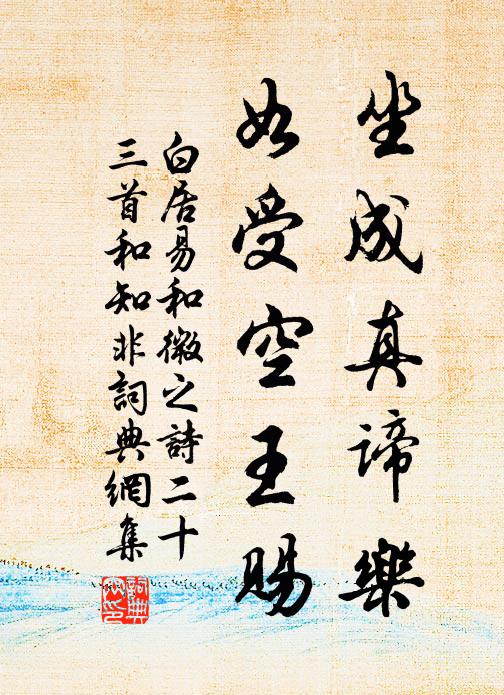 坐成真諦樂
如受空王賜
白居易和微之詩二十
三首和知非詞典網集